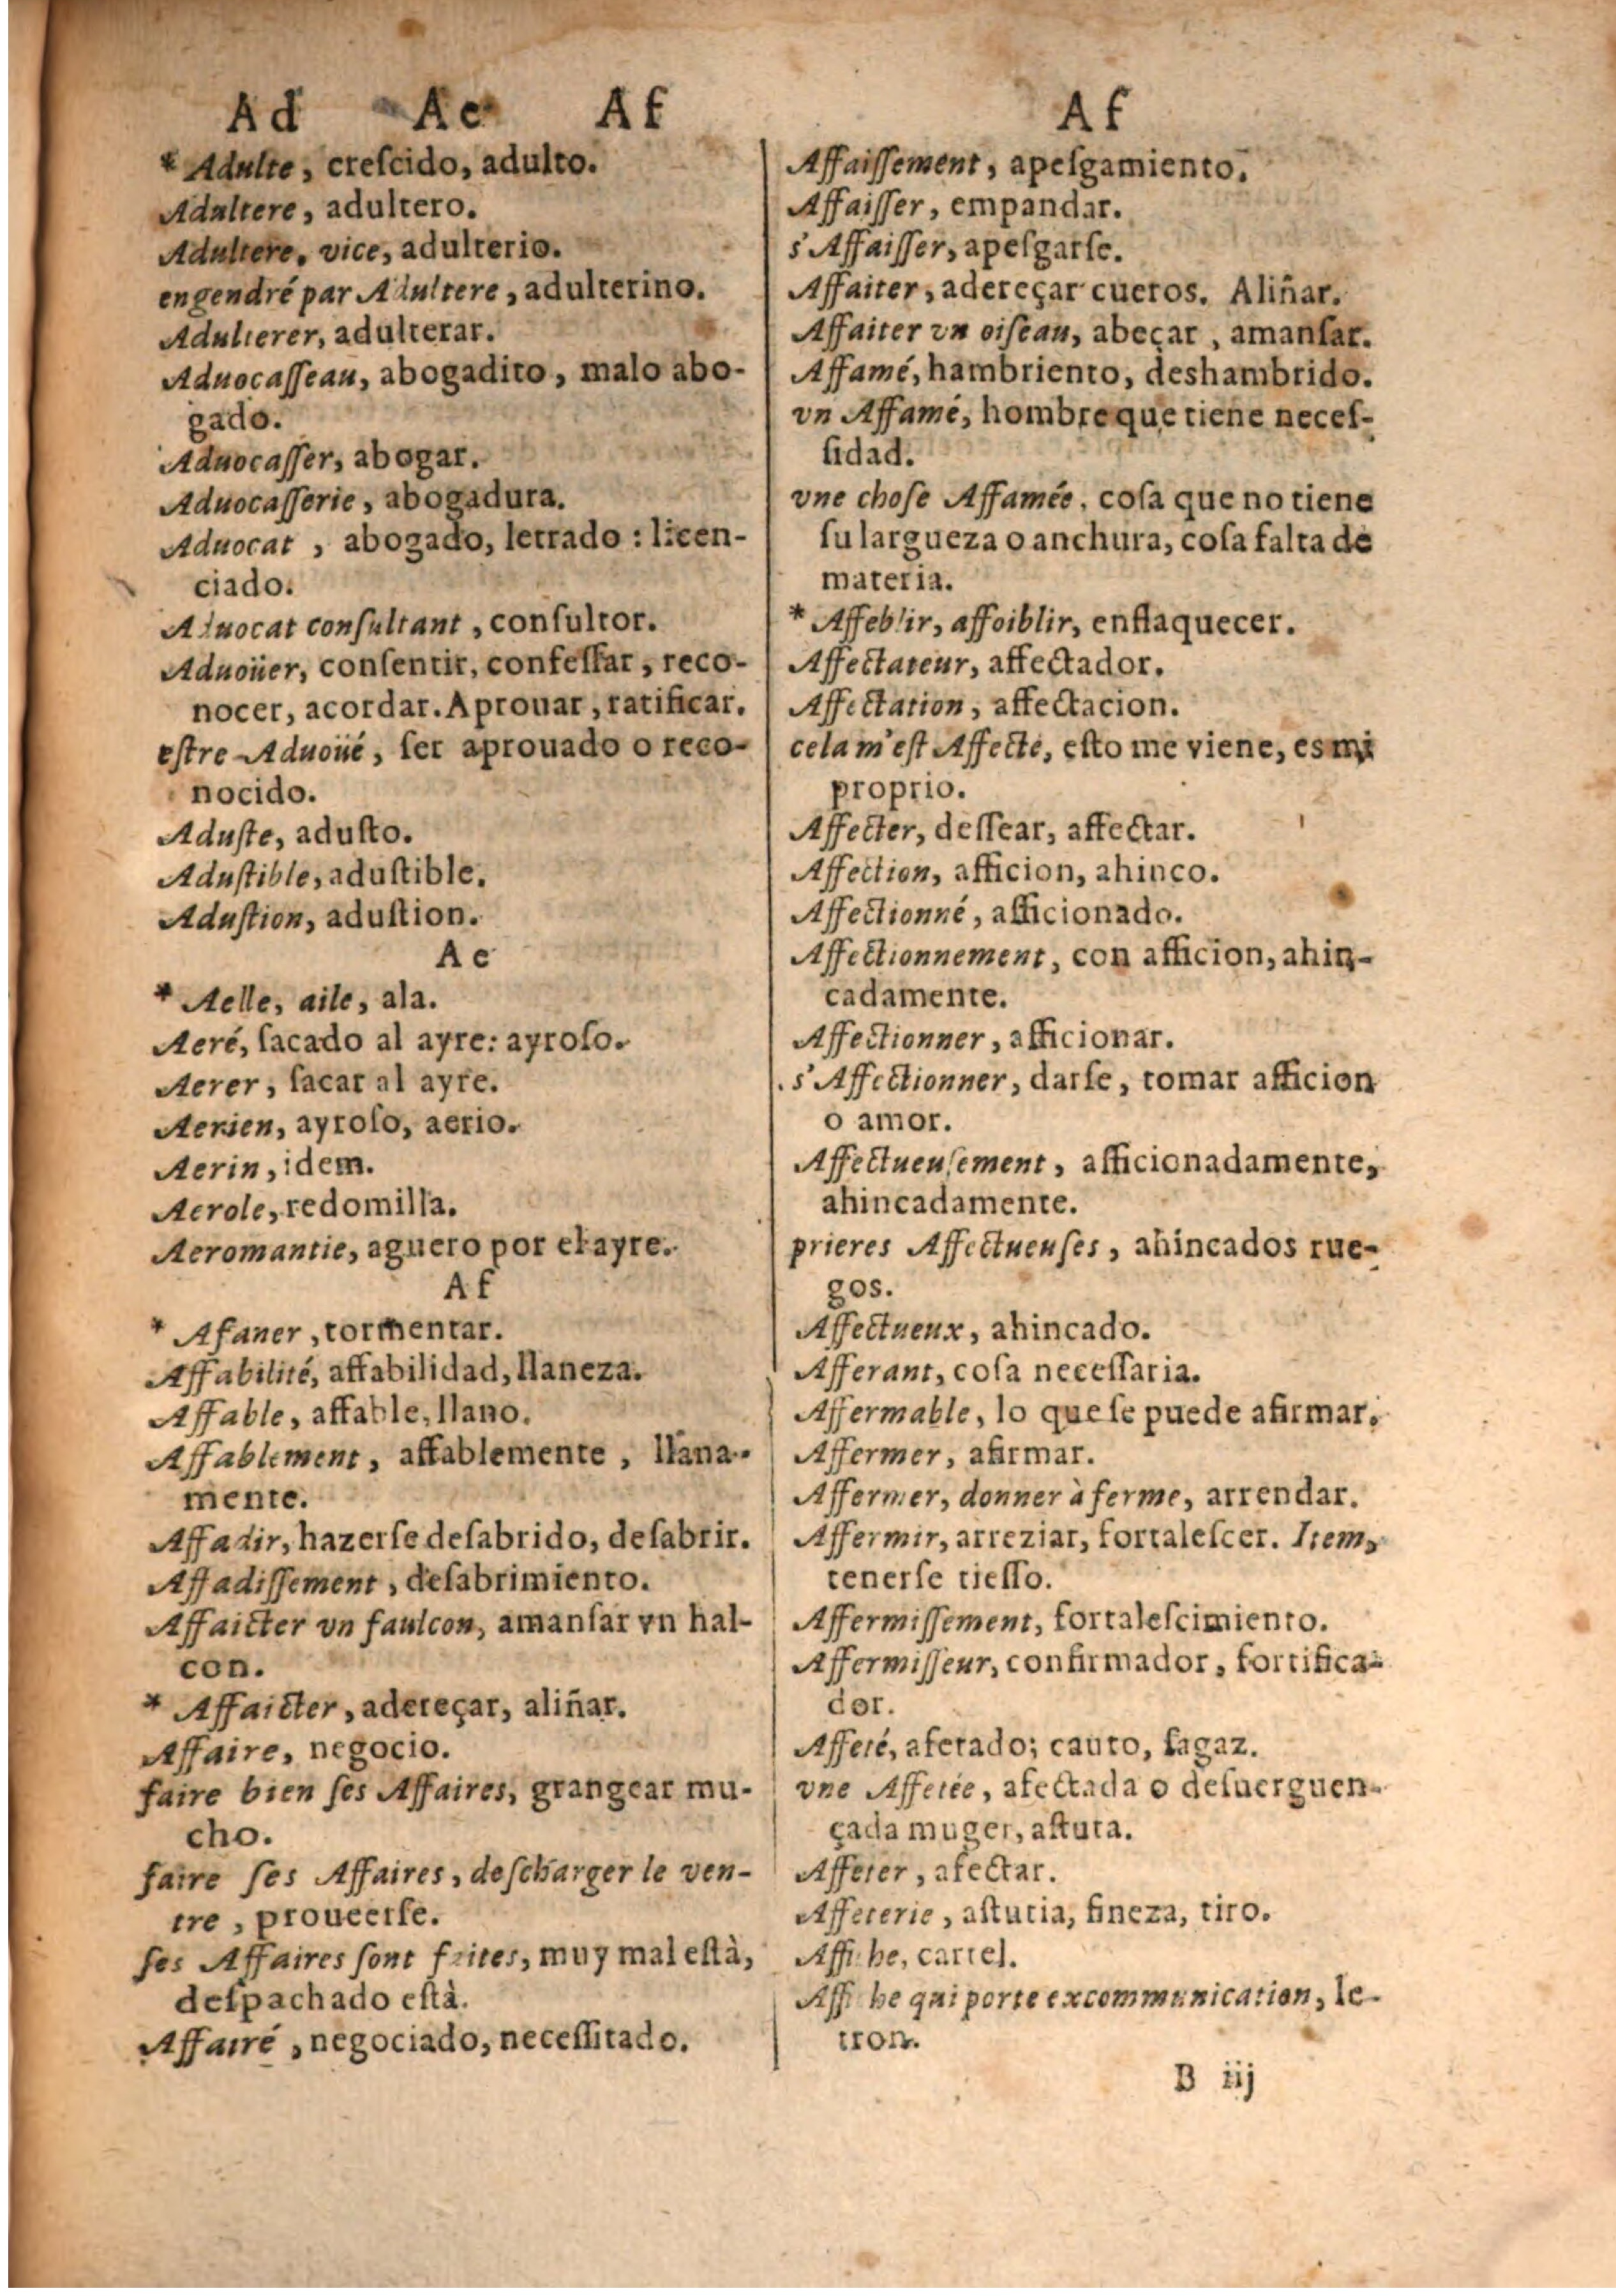 Ad Ae Af
* Adulte, creſcido, adulto.
Adultere, adultero.
Adultere, vice, adulterio.
engendré par Adultere, adulterino.
Adulterer, adulterar.
Aduocaſſeau, abogadito, malo abo-
gado.
Aduocaſſer, abogar.
Aduocaſſerie, abogadura.
Aduocat, abogado, letrado : licen-
ciado.
Aduocat conſultant, conſultor.
Aduoüer, conſentir, confeſſar, reco-
nocer, acordar. Aprouar, ratificar.
eſtre Aduoüé, ſer aprouado o reco-
nocido.
Aduſte, aduſto.
Aduſtible, aduſtible.
Aduſtion, aduſtion.
Ae
* Aelle, aile, ala.
Aeré, ſacado al ayre: ayroſo.
Aerer, ſacar al ayre.
Aerien, ayroſo, aerio.
Aerin, idem.
Aerole, redomilla.
Aeromantie, aguero por el ayre.
Af
* Afaner, tormentar.
Affabilité, affabilidad, llaneza.
Affable, affable, llano.
Affablement, affablemente, llana-
mente.
Affadir, hazerſe deſabrido, deſabrir.
Affadiſſement, deſabrimiento.
Affaicter vn faulcon, amanſar vn hal-
con.
* Affaicter, adereçar, aliñar.
Affaire, negocio.
faire bien ſes Affaires, grangear mu-
cho.
faire ſes Affaires, deſcharger le ven-
tre, proueerſe.
ſes Affaires ſont faites, muy mal eſtà,
deſpachado eſtà.
Affairé, negociado, neceſſitado.
Af
Affaiſſement, apeſgamiento.
Affaiſſer, empandar.
s'Affaiſſer, apeſgarſe.
Affaiter, adereçar cueros. Aliñar.
Affaiter vn oiſeau, abeçar, amanſar.
Affamé, hambriento, deshambrido.
vn Affamé, hombre que tiene neceſ-
ſidad.
vne choſe Affamée, coſa que no tiene
ſu largueza o anchura, coſa falta de
materia.
* Affeblir, affoiblir, enflaquecer.
Affectateur, affectador.
Affectation, affectacion.
cela m'eſt Affecté, eſto me viene, es mi
proprio.
Affecter, deſſear, affectar.
Affection, afficion, ahinco.
Affectionné, afficionado.
Affectionnement, con afficion, ahin-
cadamente.
Affectionner, afficionar.
s'Affectionner, darſe, tomar afficion
o amor.
Affectueuſement, afficionadamente,
ahincadamente.
prieres Affectueuſes, ahincados rue-
gos.
Affectueux, ahincado.
Afferant, coſa neceſſaria.
Affermable, lo que ſe puede afirmar.
Affermer, afirmar.
Affermer, donner à ferme, arrendar.
Affermir, arreziar, fortaleſcer. Item,
tenerſe tieſſo.
Affermiſſement, fortaleſcimiento.
Affermiſſeur, confirmador, fortifica-
dor.
Affeté, afetado; cauto, ſagaz.
vne Affetée, afectada o deſuerguen-
çada muger, aſtuta.
Affeter, afectar.
Affeterie, aſtutia, fineza, tiro.
Affiche, cartel.
Affiche qui porte excommunication, le-
tron.
B iij